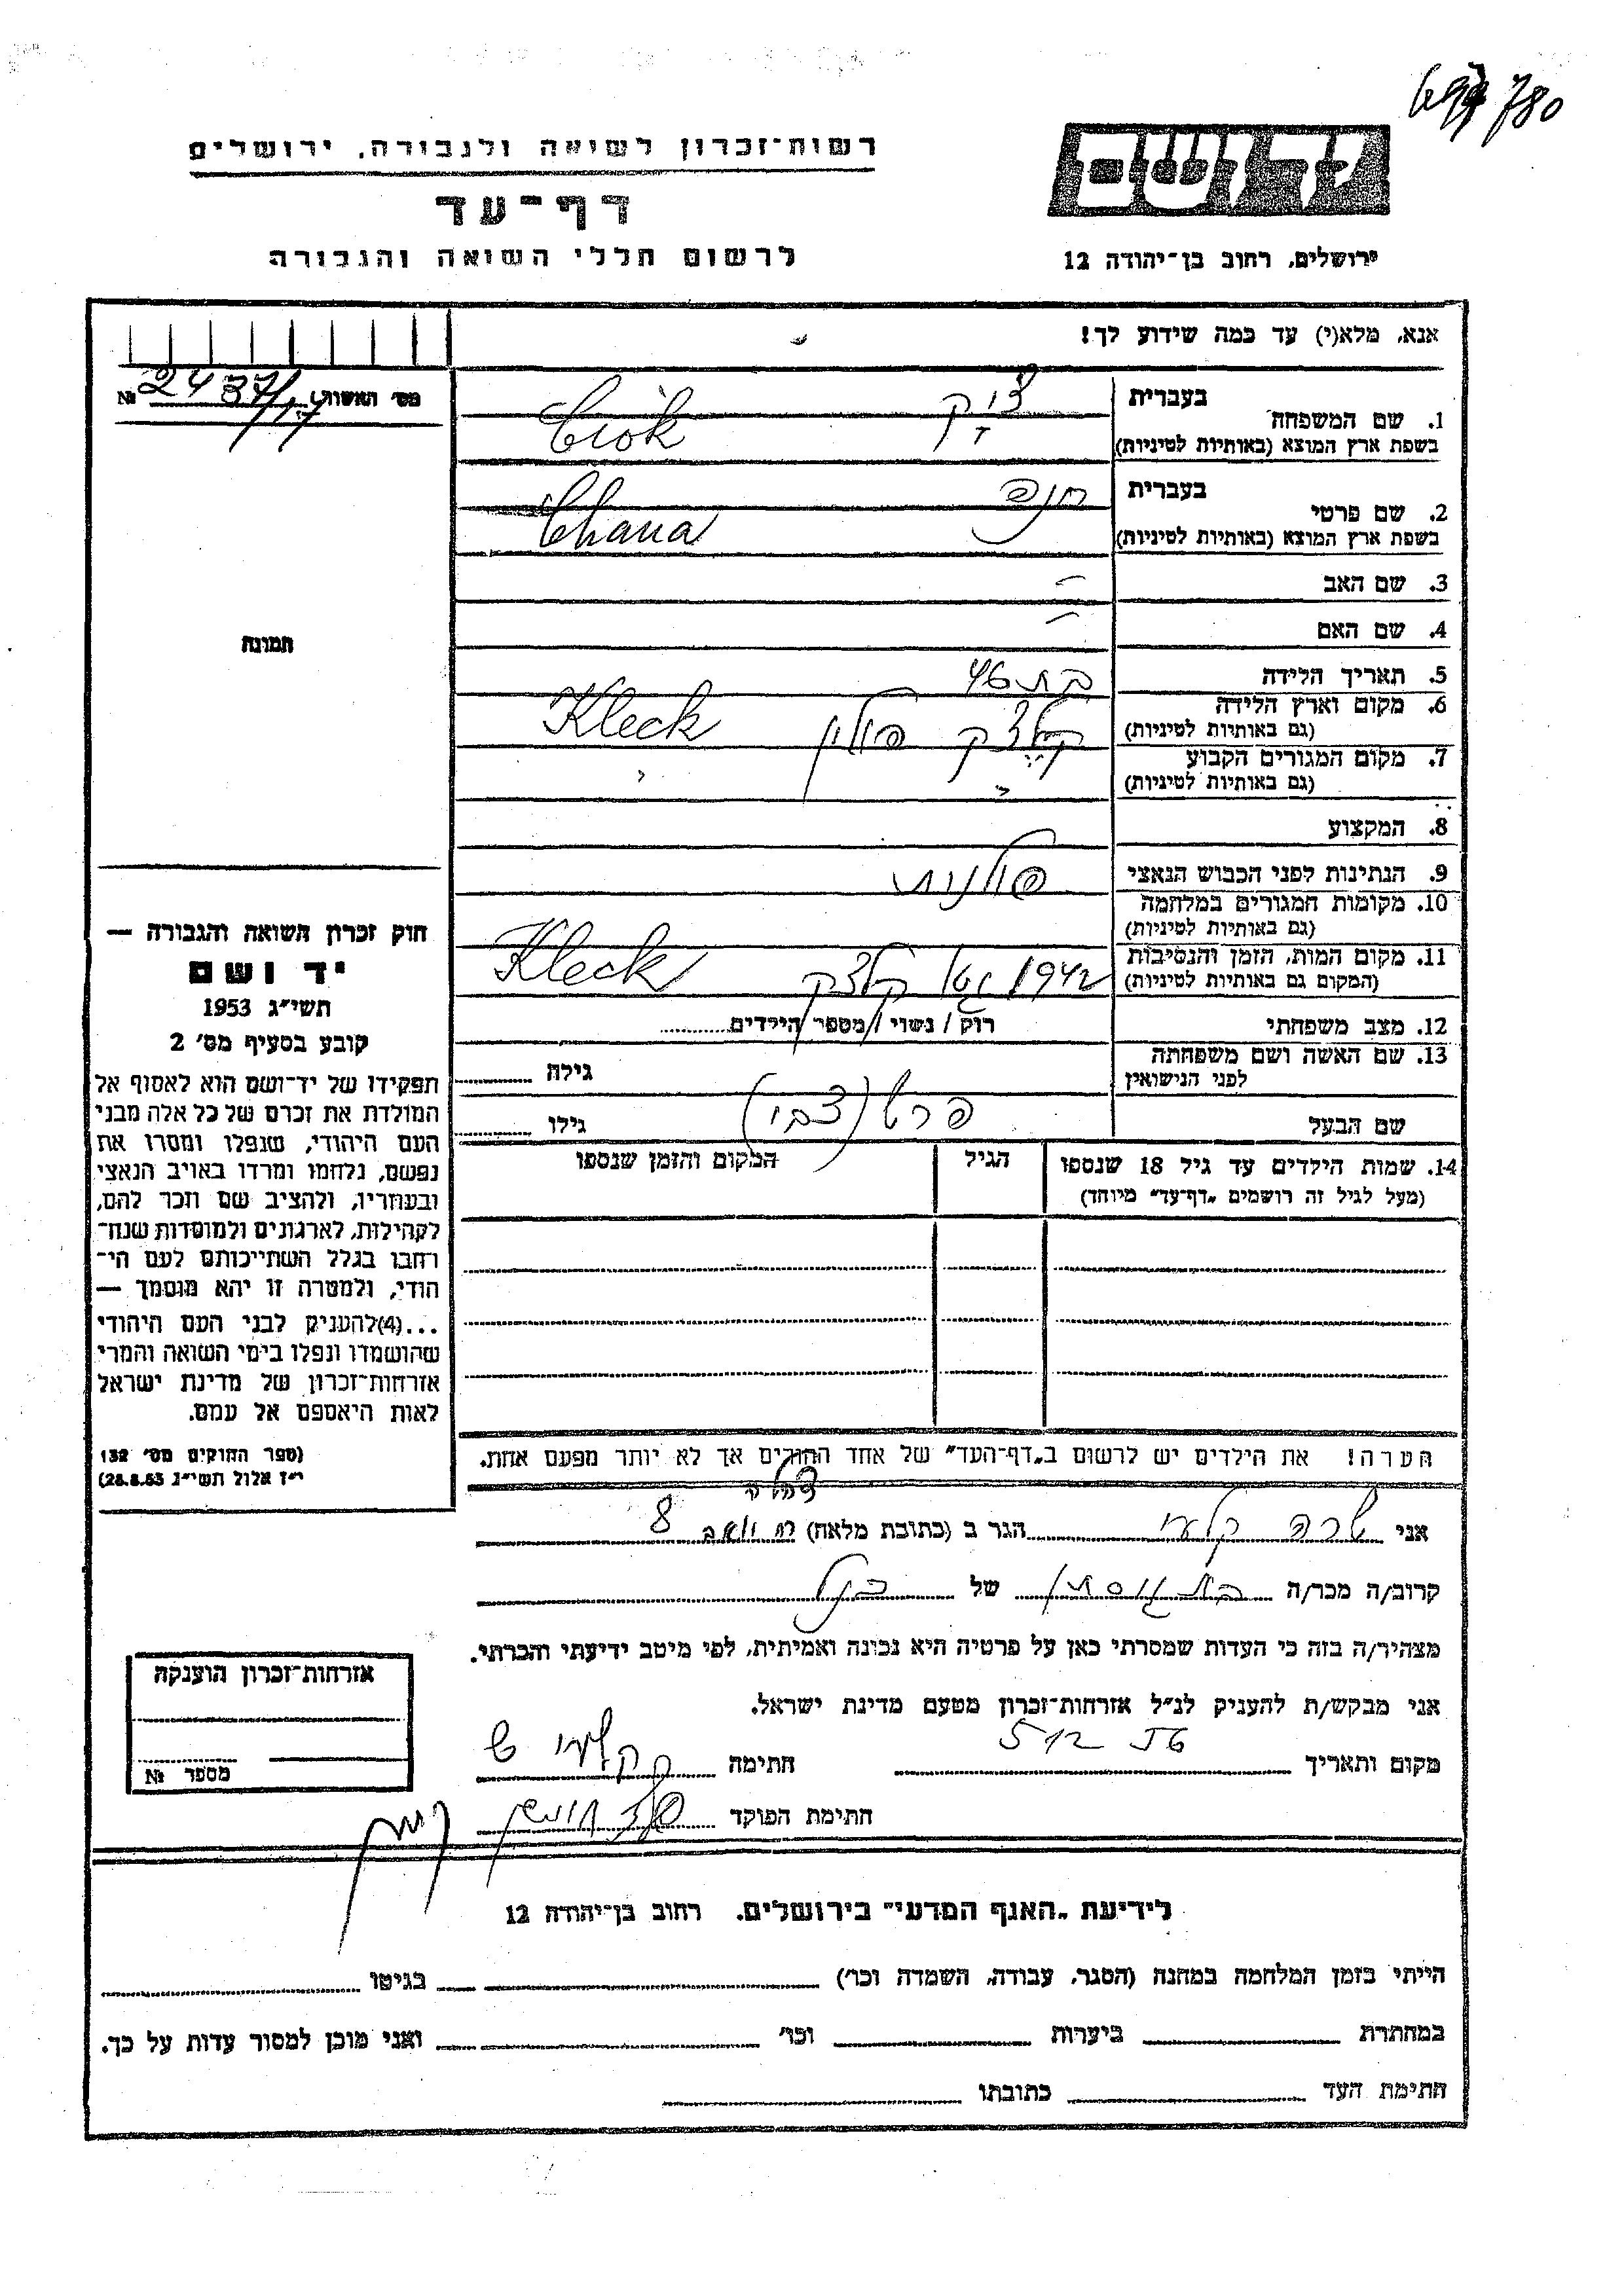 780
רשות־זכרון לשואה ולגבורה, ירושלים
דף־עד
לרשום חללי השואה והגבורה
יד ושם
ירושלים, רחוב בן־יהודה 12
אנא, מלא(י) עד כמה שידוע לך!
מס׳ האשות № 2437/17
1. שם המשפחה
בעברית
בשפת ארץ המוצא (באותיות לטיניות)
Crok
2. שם פרטי
בעברית חנה
בשפת ארץ המוצא (באותיות לטיניות)
Chana
3. שם האב –
4. שם האם –
5. תאריך הלידה בת 46
6. מקום וארץ הלידה
(גם באותיות לטיניות)
קלצק פולין Kleck
7. מקום המגורים הקבוע
(גם באותיות לטיניות)
8. המקצוע
9. הנתינות לפני הכבוש הנאצי פולנית
10. מקומות המגורים במלחמה
(גם באותיות לטיניות)
11. מקום המות, הזמן והנסיבות
(המקום גם באותיות לטיניות)
1942 גטו קלצק Kleck
12. מצב משפחתי רוק / נשוי / מספר הילדים
13. שם האשה ושם משפחתה
לפני הנישואין
גילה
שם הבעל (צבי) גילו
14. שמות הילדים עד גיל 18 שנספו
(מעל לגיל זה רושמים „דף־עד״ מיוחד)
הגיל
המקום והזמן שנספו
הערה! את הילדים יש לרשום ב„דף־העד״ של אחד ההורים אך לא יותר מפעם אחת.
תמונה
חוק זכרון השואה והגבורה —
יד ושם
תשי״ג 1953
קובע בסעיף מס׳ 2
תפקידו של יד־ושם הוא לאסוף אל
המולדת את זכרם של כל אלה מבני
העם היהודי, שנפלו ומסרו את
נפשם, נלחמו ומרדו באויב הנאצי
ובעוזריו, ולהציב שם וזכר להם,
לקהילות, לארגונים ולמוסדות שנח־
רבו בגלל השתייכותם לעם הי־
הודי, ולמטרה זו יהא מוסמך —
...(4)להעניק לבני העם היהודי
שהושמדו ונפלו בימי השואה והמרי
אזרחות־זכרון של מדינת ישראל
לאות היאספם אל עמם.
(ספר החוקים מס׳ 132
י״ז אלול תשי״ג 28.8.53)
אני שרה קלעי הגר ב (כתובת מלאה) 8
קרוב/ה מכר/ה של
מצהיר/ה בזה כי העדות שמסרתי כאן על פרטיה היא נכונה ואמיתית, לפי מיטב ידיעתי והכרתי.
אני מבקש/ת להעניק לנ״ל אזרחות־זכרון מטעם מדינת ישראל.
מקום ותאריך חתימה
חתימת הפוקד
אזרחות־זכרון הוענקה
מספר №
לידיעת „האגף המדעי״ בירושלים. רחוב בן־יהודה 12
הייתי בזמן המלחמה במחנה (הסגר, עבודה, השמדה וכו׳) בגיטו
במחתרת ביערות וכו׳ ואני מוכן למסור עדות על כך.
חתימת העד כתובתו